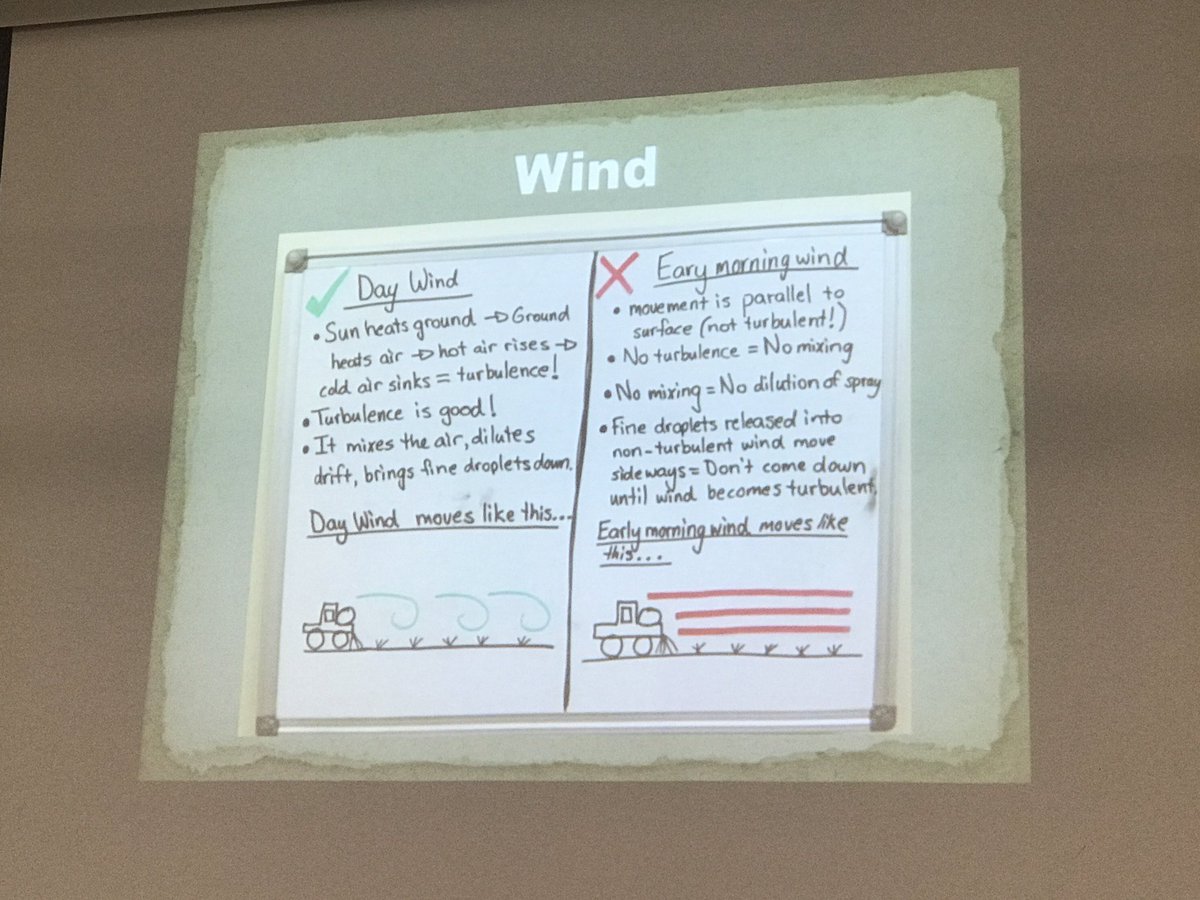 Wind
Day Wind
• Sun heats ground → Ground
heats air → hot air rises →
cold air sinks = turbulence!
• Turbulence is good!
• It mixes the air, dilutes
drift, brings fine droplets down.
Day Wind moves like this...
Eary morning wind
• movement is parallel to
surface (not turbulent!)
• No turbulence = No mixing
• No mixing = No dilution of spray
• Fine droplets released into
non-turbulent wind move
sideways = Don't come down
until wind becomes turbulent.
Early morning wind moves like
this...